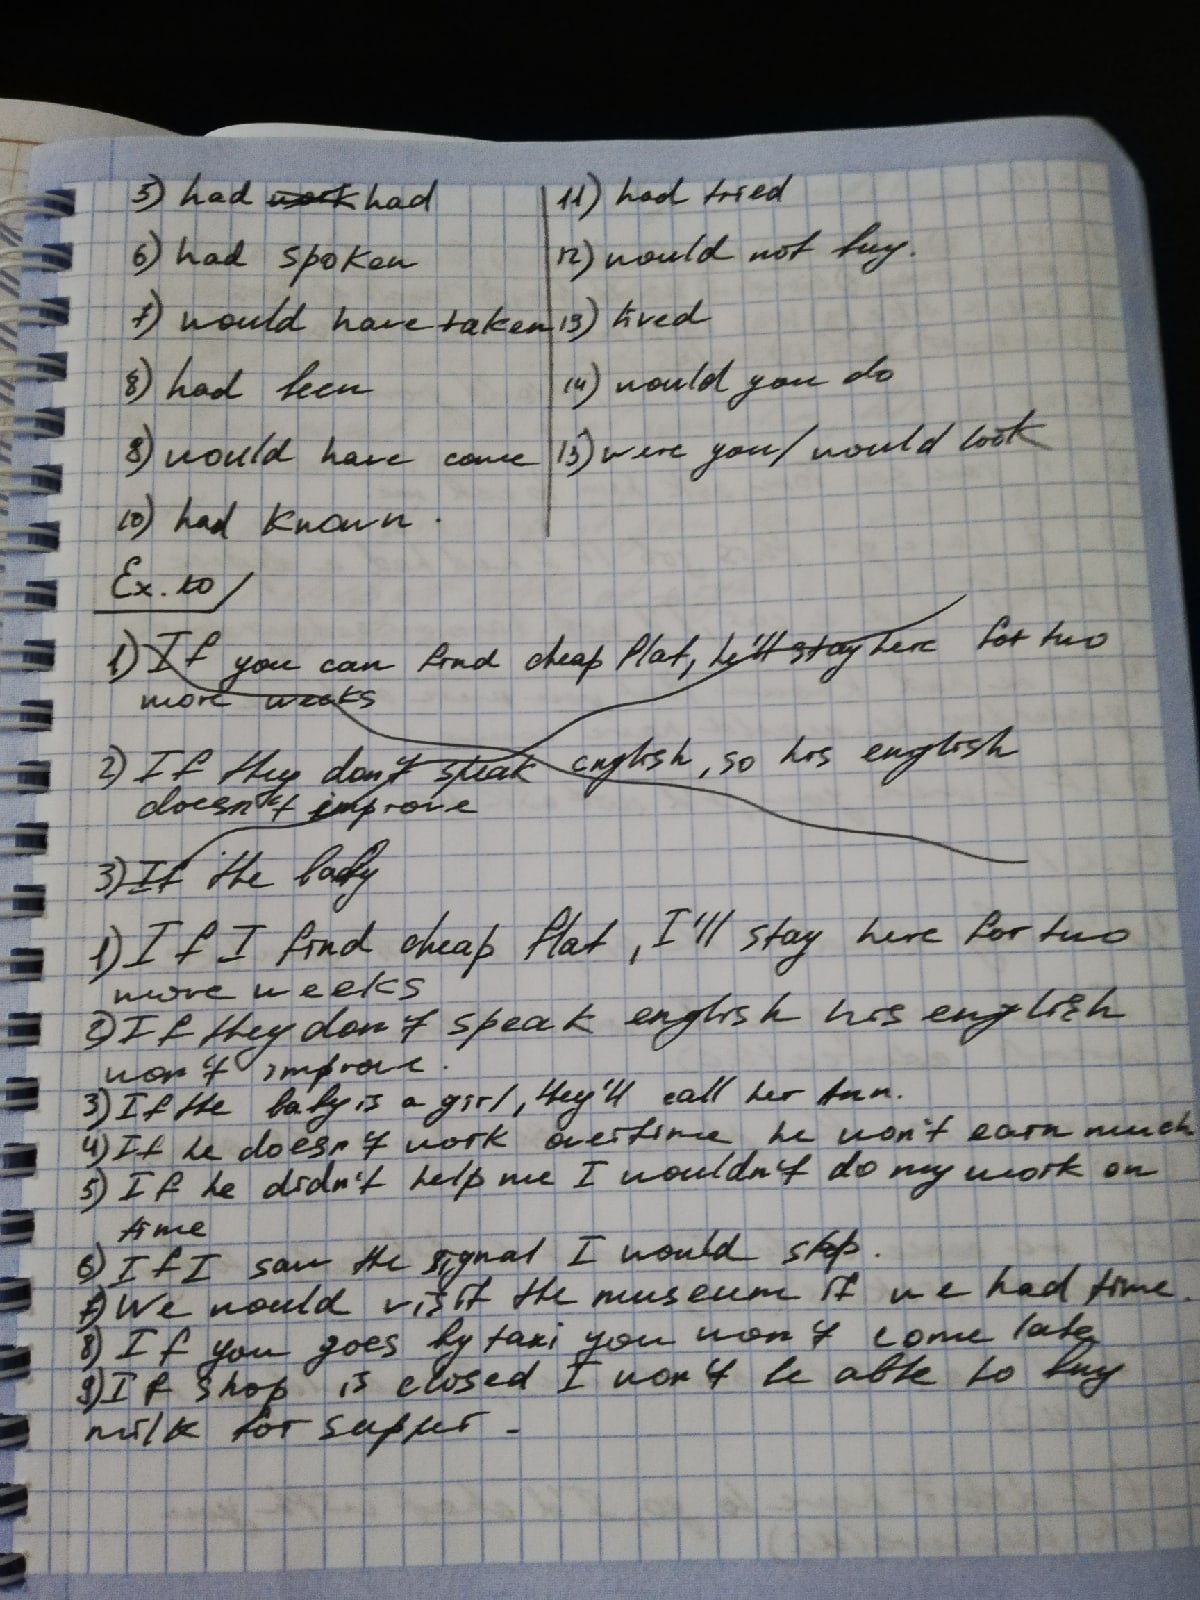 5) had work had
6) had spoken
7) would have taken
8) had been
9) would have come
10) had known.
11) had tried
12) would not buy.
13) lived
14) would you do
15) were you/would look
Ex. 10
1) If you can find cheap flat, he'll stay here for two
more weeks
2) If they don't speak english, so his english
doesn't improve
3) If the baby
1) If I find cheap flat, I'll stay here for two
more weeks
2) If they don't speak english his english
won't improve.
3) If the baby is a girl, they'll call her Ann.
4) If he doesn't work overtime he won't earn much
5) If he didn't help me I wouldn't do my work on
time
6) If I saw the signal I would stop.
7) We would visit the museum if we had time.
8) If you goes by taxi you won't come late
9) If shop is closed I won't be able to buy
milk for supper.